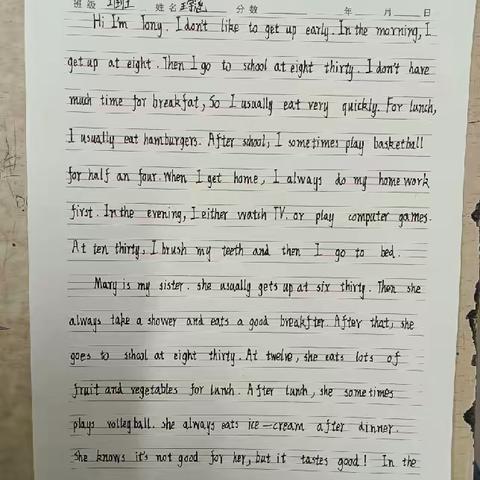 班级 姓名 分数 年 月 日
Hi I'm Tony. I don't like to get up early. In the morning, I
get up at eight. Then I go to school at eight thirty. I don't have
much time for breakfat, So I usually eat very quickly. For lunch,
I usually eat hamburgers. After school, I sometimes play basketball
for half an four. When I get home, I always do my home work
first. In the evening, I either watch TV. or play computer games.
At ten thirty, I brush my teeth and then I go to bed.
Mary is my sister. she usually gets up at six thirty. Then she
always take a shower and eats a good breakfter. After that, she
goes to school at eight thirty. At twelve, she eats lots of
fruit and vegetables for lunch. After lunch, she some times
plays volleyball. she always eats ice-cream after dinner.
She knows it's not good for her, but it tastes good! In the